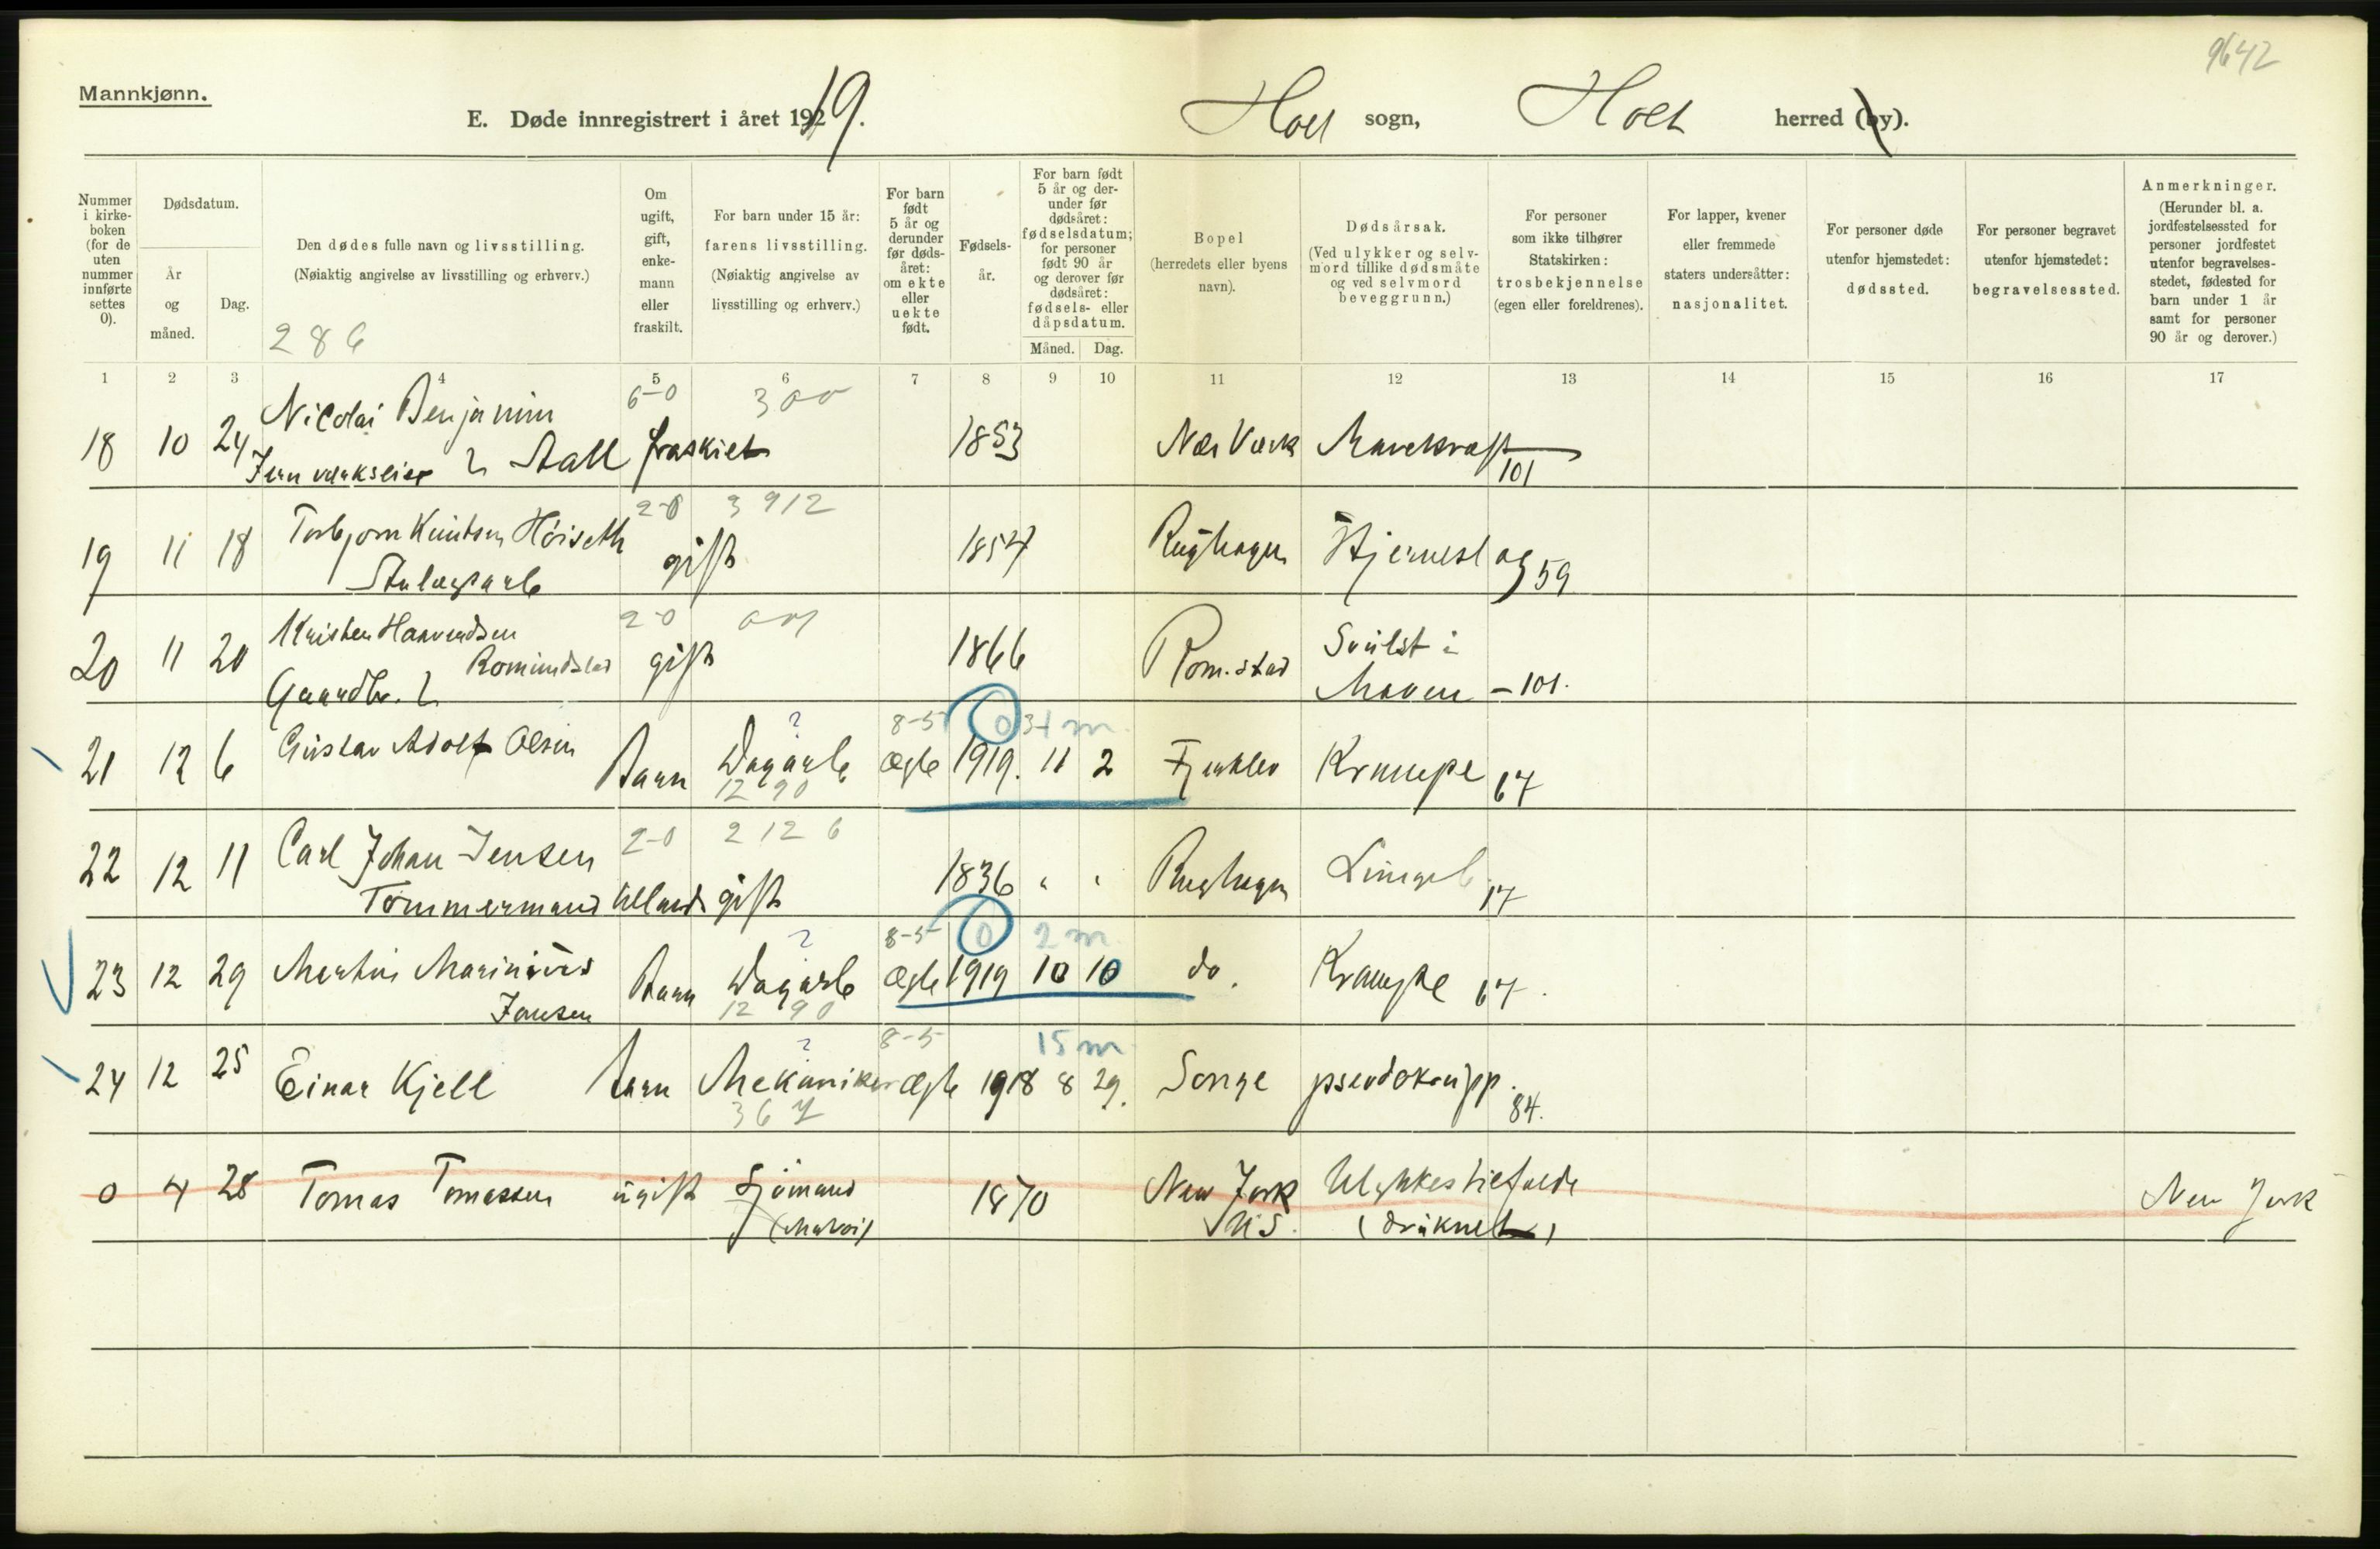 9642
Mannkjønn.
E. Døde innregistrert i året 1919.
Holt sogn, Holt herred (by).
Nummer i kirkeboken (for de uten nummer innførte settes 0).
Dødsdatum.
År og måned.
Dag.
Den dødes fulle navn og livsstilling.
(Nøiaktig angivelse av livsstilling og erhverv.)
286
Om ugift, gift, enkemann eller fraskilt.
For barn under 15 år:
farens livsstilling.
(Nøiaktig angivelse av livsstilling og erhverv.)
For barn født 5 år og derunder før dødsåret: om ekte eller uekte født.
Fødselsår.
For barn født 5 år og derunder før dødsåret: fødselsdatum; for personer født 90 år og derover før dødsåret: fødsels- eller dåpsdatum.
Måned. Dag.
Bopel
(herredets eller byens navn).
Dødsårsak.
(Ved ulykker og selvmord tillike dødsmåte og ved selvmord beveggrunn.)
For personer som ikke tilhører Statskirken: trosbekjennelse (egen eller foreldrenes).
For lapper, kvener eller fremmede staters undersåtter: nasjonalitet.
For personer døde utenfor hjemstedet: dødssted.
For personer begravet utenfor hjemstedet: begravelsessted.
Anmerkninger.
(Herunder bl. a. jordfestelsessted for personer jordfestet utenfor begravelsesstedet, fødested for barn under 1 år samt for personer 90 år og derover.)
1 2 3 4 5 6 7 8 9 10 11 12 13 14 15 16 17
6-0 300
Nicolai Benjamin
18 10 24 Aall fraskilt 1853 Næs Værk Mavekræft 101
2-0 3912
19 11 18 Torbjørn Knutsen Høiseth gift 1854 Hjerneslag 59
2-0
20 11 20 Kristen Haavendsen gift 1866 Rom.stad Svulst i
Gaardbr. Maven - 101.
? 8-5 0 34 m.
21 12 6 Gustav Adolf Olsen Barn Dagarb Ægte 1919. 11 2 Krampe 67
12 90
2-0 2126
22 12 11 Carl Johan Jensen gift 1836 " " 17
Tømmermand
? 8-5 0 2 m.
23 12 29 Marinius Barn Dagarb Ægte 1919 10 10 do. Krampe 67.
Jensen 12 90
? 8-5 15 m
24 12 25 Einar Kjell Barn Mekaniker Ægte 1918 8 29. Songe pseudokrupp. 84.
367
0 4 28 Tomas Tomassen ugift Sjömand 1870 New York Ulykkestilfælde New York
U.S. (druknet)